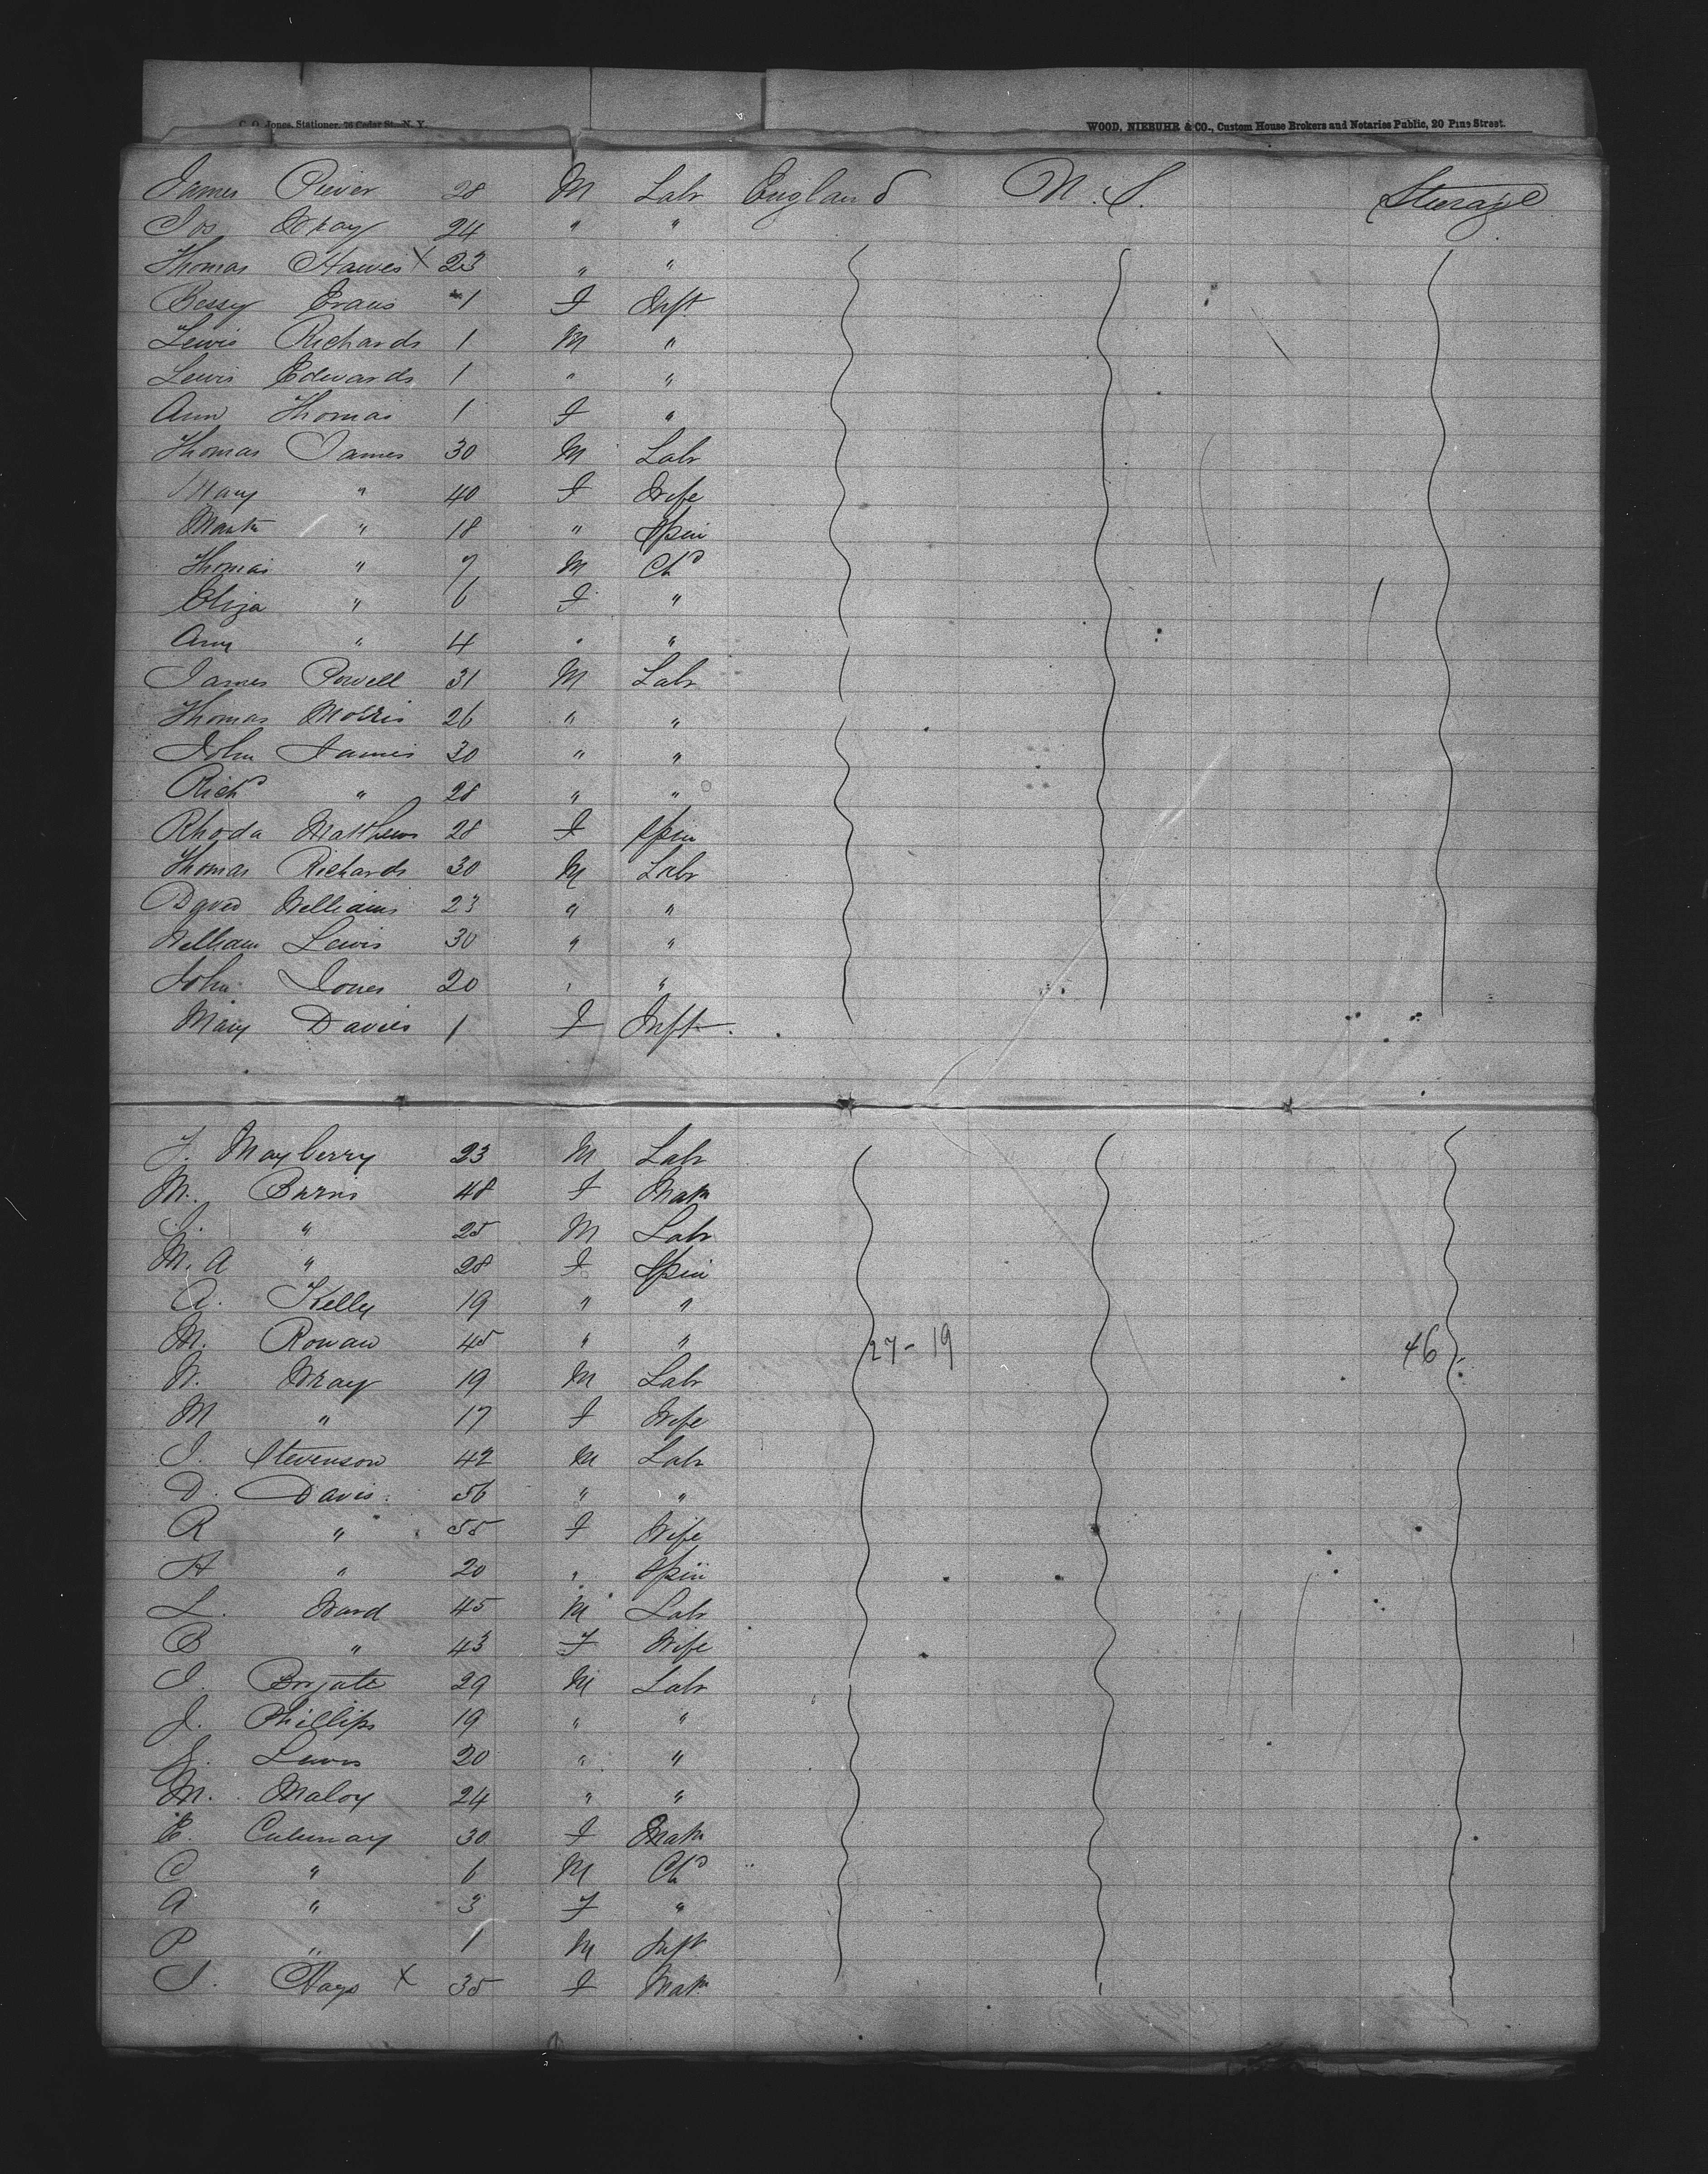 C. O. Jones, Stationer, 76 Cedar St., N. Y. WOOD, NIEBUHR & CO., Custom House Brokers and Notaries Public, 20 Pine Street.
James 28 M Labr England U.S. Steerage
Jos Wray 24 " "
Thomas Hawes X 23 " "
Bessy Evans 1 F Inft
Lewis Richards 1 M "
Lewis Edwards 1 " "
Ann Thomas 1 F "
Thomas James 30 M Labr
Mary " 40 F Wife
" 18 " Spin
Thomas " 7 M Chd
Eliza " 6 F "
Ann " 4 " "
James Powell 31 M Labr
Thomas Morris 26 " "
John James 30 " "
Richd " 28 " "
Rhoda Matthews 28 F Spin
Thomas Richards 30 M Labr
David Williams 23 " "
William Lewis 30 " "
John Jones 20 " "
Mary Davies 1 F Inft
F. Mayberry 23 M Labr
M. Burns 48 F Matn
" 25 M Labr
M. A " 28 F Spin
A. Kelly 19 " "
M. Rowan 45 " " 27-19 46
W. Wray 19 M Labr
M " 17 F Wife
J. Stevenson 42 M Labr
D. Davis 56 " "
R " 55 F Wife
H " 20 " Spin
L. Ward 45 M Labr
B " 43 F Wife
J. 29 M Labr
J. Phillips 19 " "
Lewis 20 " "
M. Maloy 24 " "
E. 30 F Matn
C " 6 M Chd
A " 3 F "
P " 1 M Inft
J. Hays X 35 F Matn